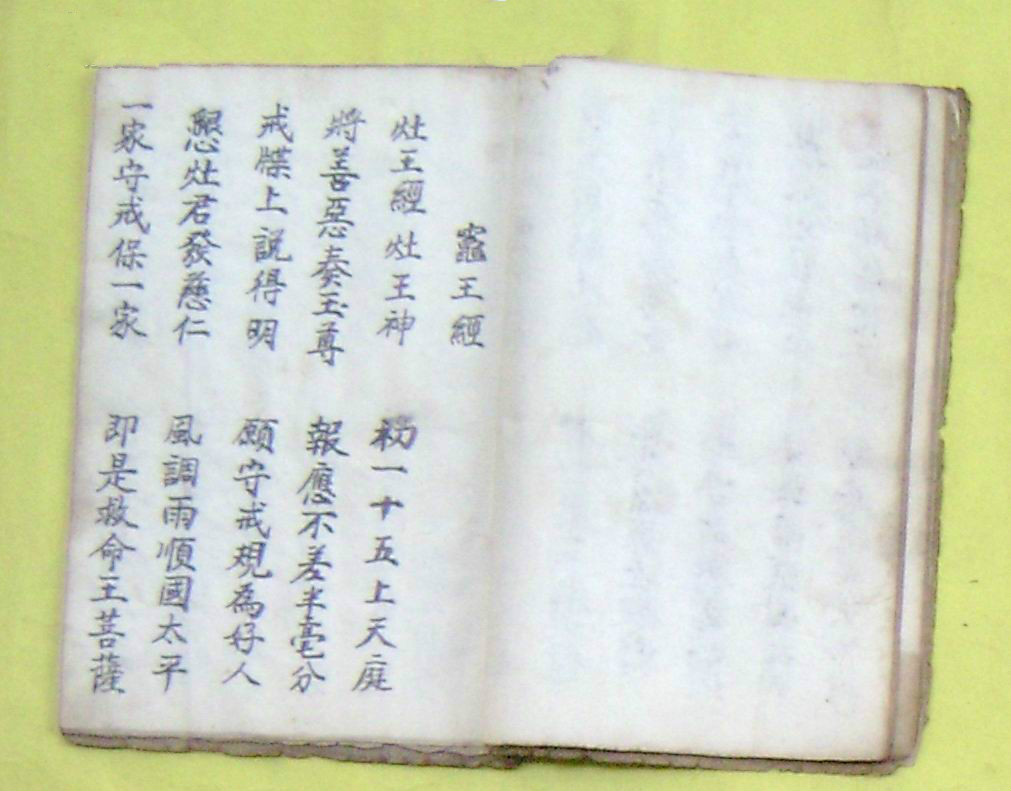 竈王經
灶王經灶王神 初一十五上天庭
將善惡奏玉尊 報應不差半毫分
戒牒上説得明 願守戒規為好人
懇灶君發慈仁 風調雨順國太平
一家守戒保一家 即是救命王菩薩